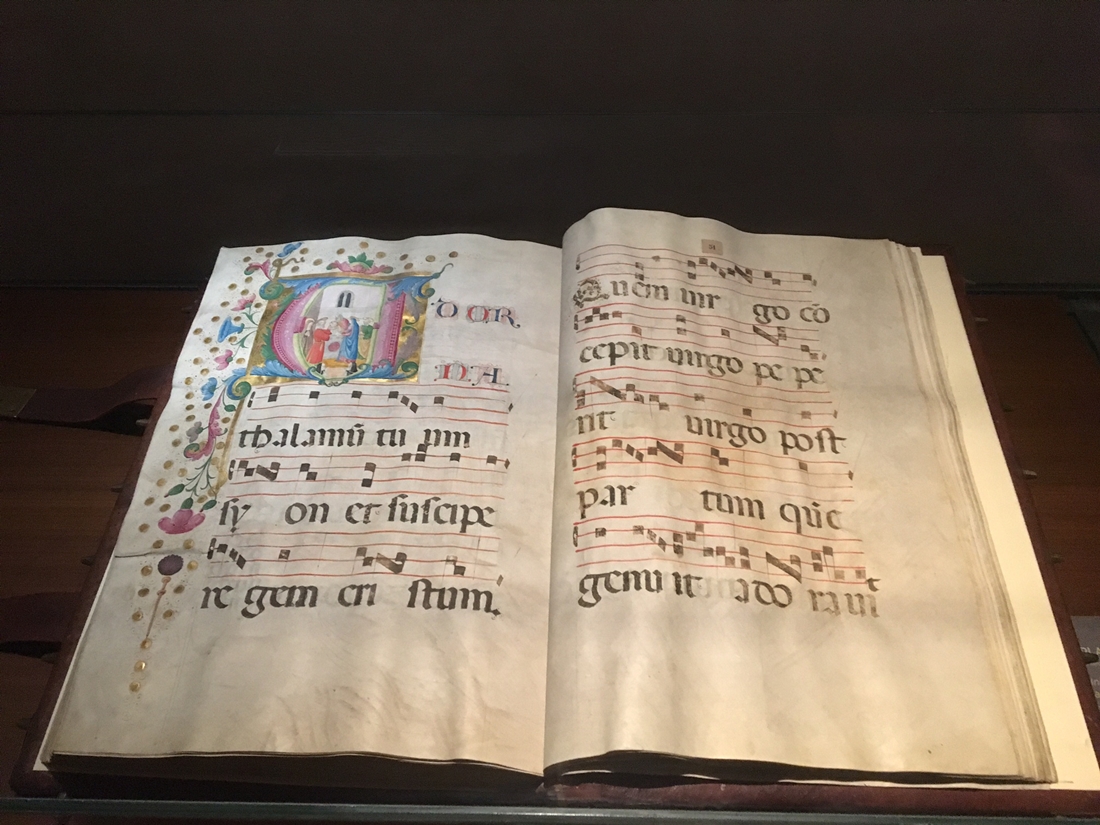 ADOR
NA
thalamū tu um
ſy on et ſuſcipe
re gem cri ſtum.
Quem uir go cō
cepit uirgo pe pe
rit uirgo poſt
par tum quē
genu it ado rauit